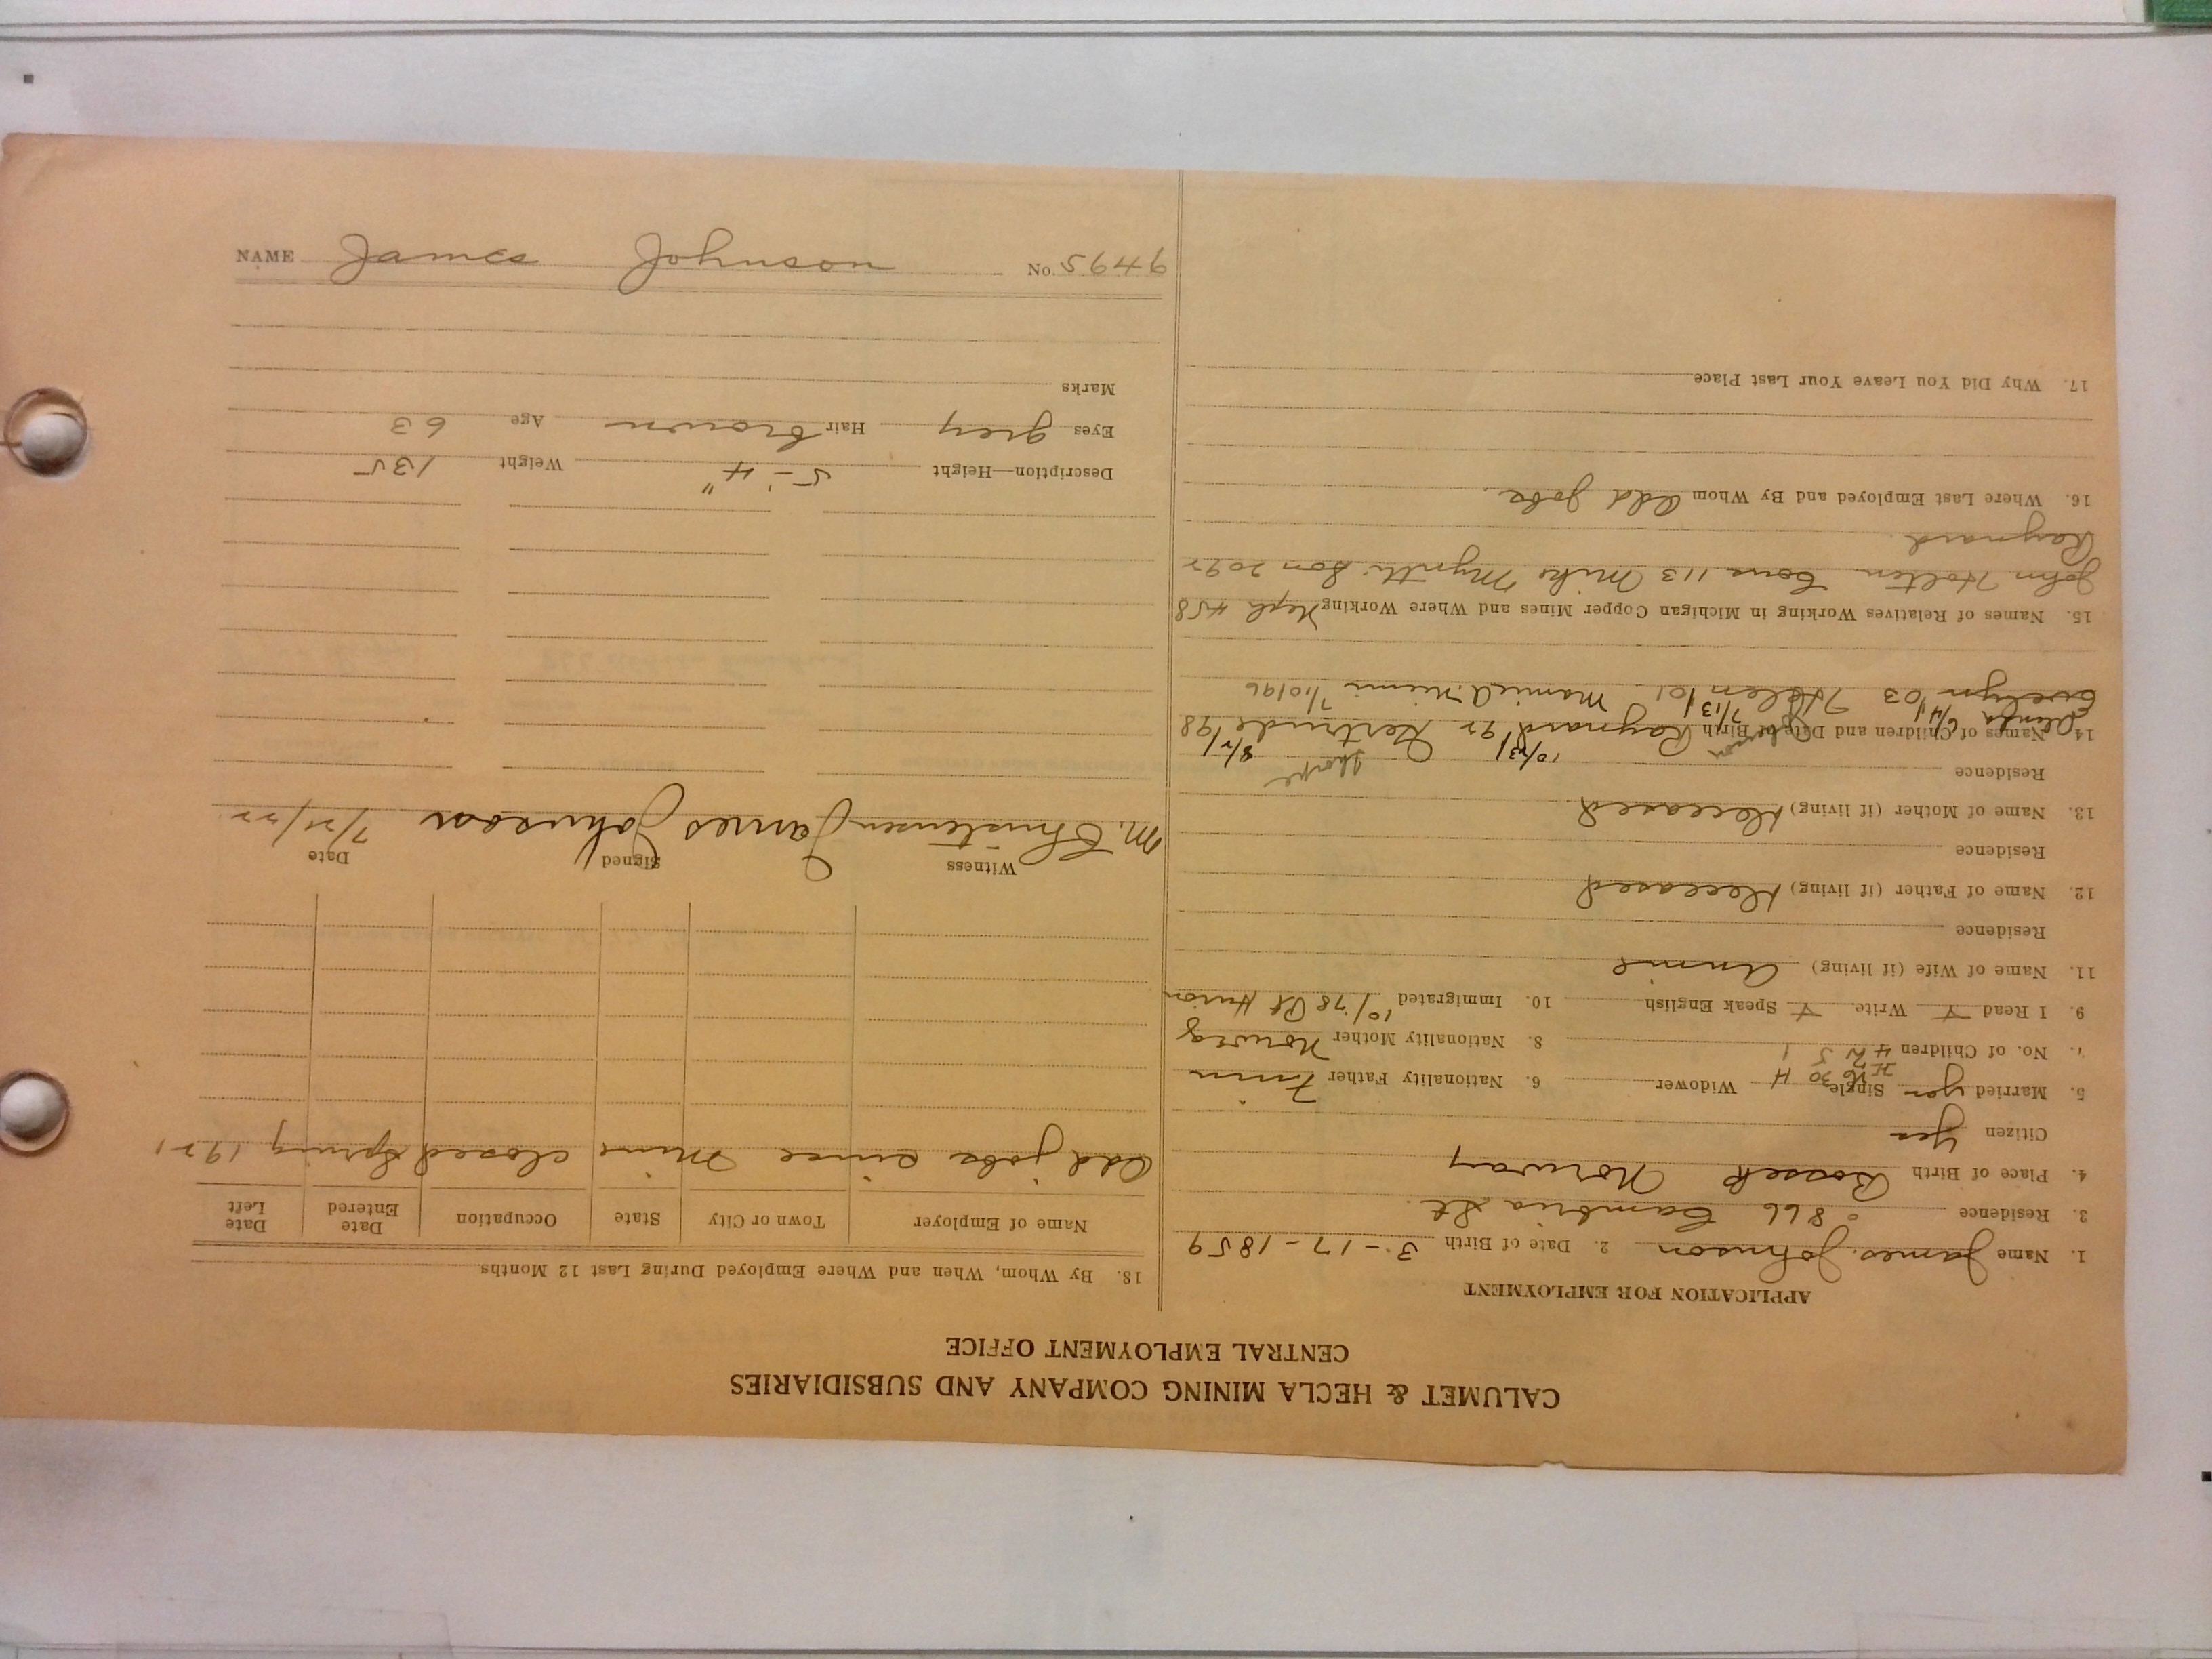 CALUMET & HECLA MINING COMPANY AND SUBSIDIARIES
CENTRAL EMPLOYMENT OFFICE
APPLICATION FOR EMPLOYMENT
1. Name James Johnson 2. Date of Birth 3-17-1859
3. Residence 866 Cambria St.
4. Place of Birth Norway
Citizen yes
5. Married yes Single 30 Widower H 6. Nationality Father Finn
7. No. of Children 5 1 8. Nationality Mother Norweg
9. I Read Y Write Y Speak English 10. Immigrated 10/78 Pt Huron
11. Name of Wife (if living) Annie
Residence
12. Name of Father (if living) Deceased
Residence
13. Name of Mother (if living) Deceased
Residence
14. Names of Children and Date of Birth Raynard 10/31/92 Gertrude 8/2/98
Evelyn 6/4/03 Helen 7/13/01 Mamie 7/10/96
15. Names of Relatives Working in Michigan Copper Mines and Where Working Neph 458
John Holten Cous 113 Mike Son 2092
Raynard
16. Where Last Employed and By Whom Odd jobs.
17. Why Did You Leave Your Last Place
18. By Whom, When and Where Employed During Last 12 Months
Name of Employer Town or City State Occupation Date Entered Date Left
Odd jobs since Mine closed Spring 1921
Witness Signed Date
M. Christensen James Johnson 7/21/22
Description—Height 5'-4" Weight 135
Eyes grey Hair brown Age 63
Marks
NAME James Johnson No. 59449